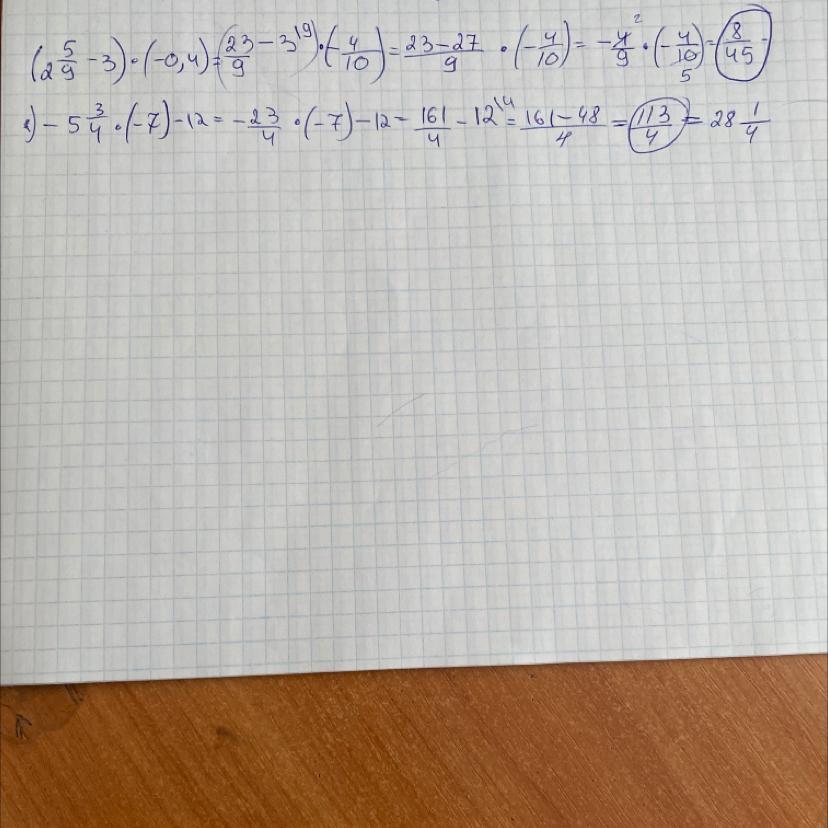 (2 5/9 - 3) · (-0,4) = (23/9 - 3\9) · (-4/10) = 23-27/9 · (-4/10) = -4/9 2 · (-4/10 5) = 8/45
) - 5 3/4 · (-7) - 12 = -23/4 · (-7) - 12 = 161/4 - 12\4 = 161-48/4 = 113/4 = 28 1/4